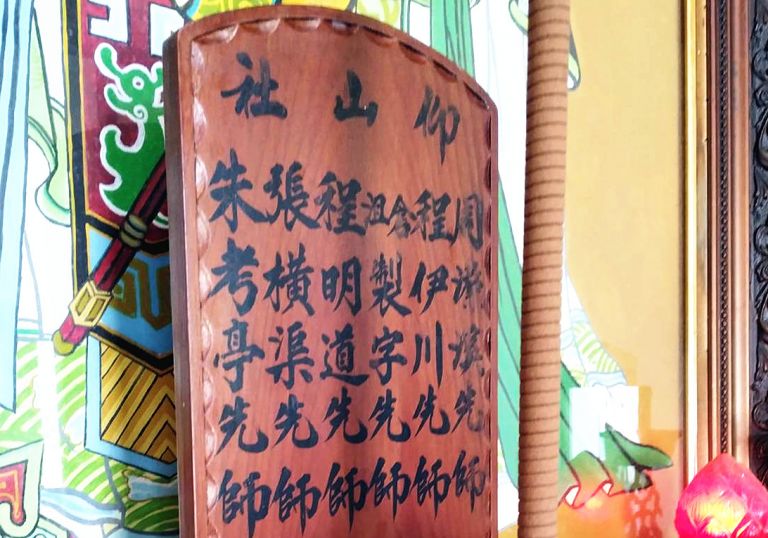 仰山社
周濂溪先師
程伊川先師
倉沮製字先師
程明道先師
張橫渠先師
朱考亭先師